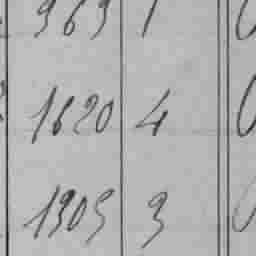 969 1
1620 4
1905 3